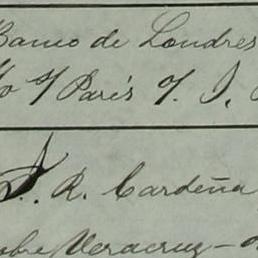 Banco de Londres
º/ París º/. I.
F. R. Cardeña
sobre Veracruz -